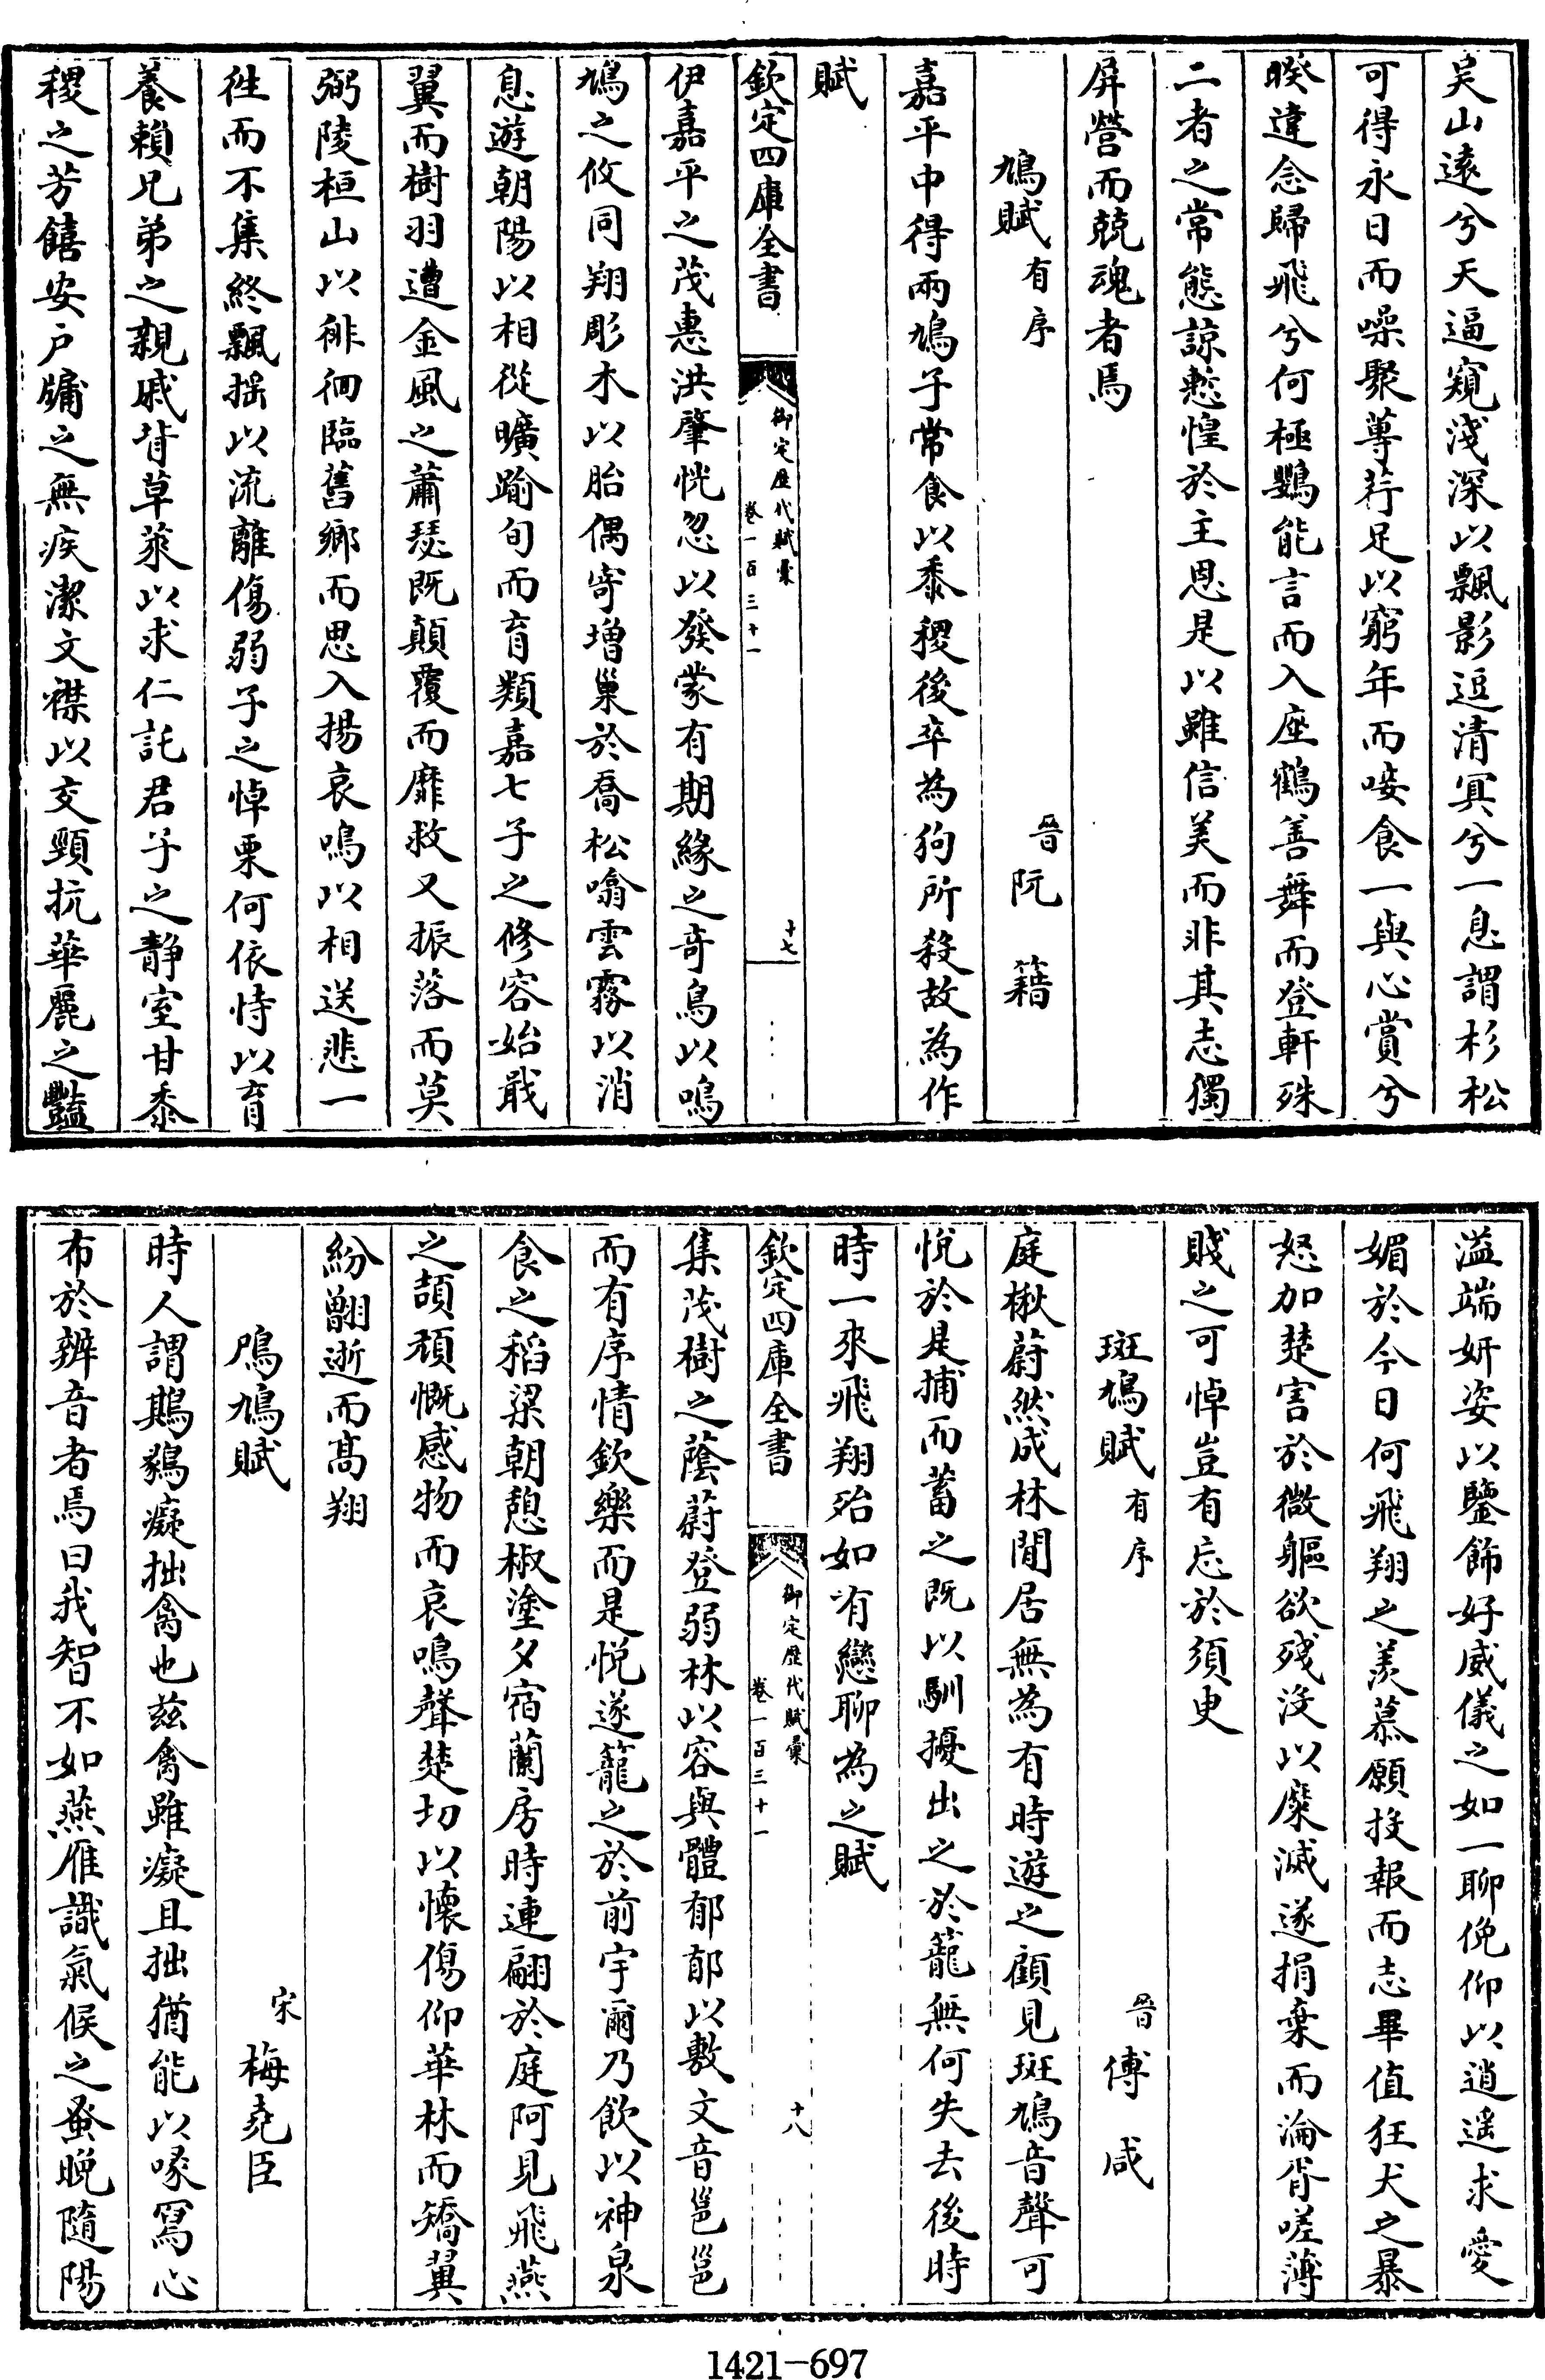 吴山遠兮天逼窺淺深以飄影逗清㝠兮一息謂杉松
可得永日而噪聚蓴荇足以窮年而唼食一與心賞兮
暌違念歸飛兮何極鸚能言而入座鶴善舞而登軒殊
二者之常態諒慙惶於主恩是以雖信美而非其志獨
屏營而兢魂者焉
鳩賦有序 晉阮籍
嘉平中得兩鳩子常食以黍稷後卒為狗所殺故為作
賦
欽定四庫全書 御定歷代賦彙 卷一百三十一 十七
伊嘉平之茂惠洪肇恍忽以發蒙有期緣之奇鳥以鳴
鳩之攸同翔彫木以胎偶寄增巢於喬松噏雲霧以消
息遊朝陽以相從曠踰旬而育類嘉七子之修容始戢
翼而樹羽遭金風之蕭瑟既顛覆而靡救又振落而莫
弼陵桓山以徘徊臨舊鄉而思入揚哀鳴以相送悲一
徃而不集終飄揺以流離傷弱子之悼栗何依恃以育
養賴兄弟之親戚背草萊以求仁託君子之静室甘黍
稷之芳饎安户牖之無疾潔文襟以交頸抗華麗之豔
溢端妍姿以鑒飾好威儀之如一聊俛仰以逍遥求愛
媚於今日何飛翔之羨慕願投報而志畢值狂犬之暴
怒加楚害於微軀欲殘没以糜滅遂捐棄而淪胥嗟薄
賤之可悼豈有忘於須㬰
斑鳩賦有序 晉傅咸
庭楸蔚然成林閒居無為有時遊之顧見斑鳩音聲可
悅於是捕而蓄之既以馴擾出之於籠無何失去後時
時一來飛翔殆如有戀聊為之賦
欽定四庫全書 御定歷代賦彙 卷一百三十一 十八
集茂樹之蔭蔚登弱林以容與體郁郁以敷文音邕邕
而有序情欽樂而是悅遂籠之於前宇爾乃飲以神泉
食之稻粱朝憩椒塗夕宿蘭房時連翩於庭阿見飛燕
之頡頏慨感物而哀鳴聲楚切以懷傷仰華林而矯翼
紛翾逝而髙翔
鳲鳩賦 宋梅堯臣
時人謂鷓鴣癡拙禽也兹禽雖癡且拙猶能以喙寫心
布於辨音者焉曰我智不如燕雁識氣候之蚤晚隨陽
1421-697